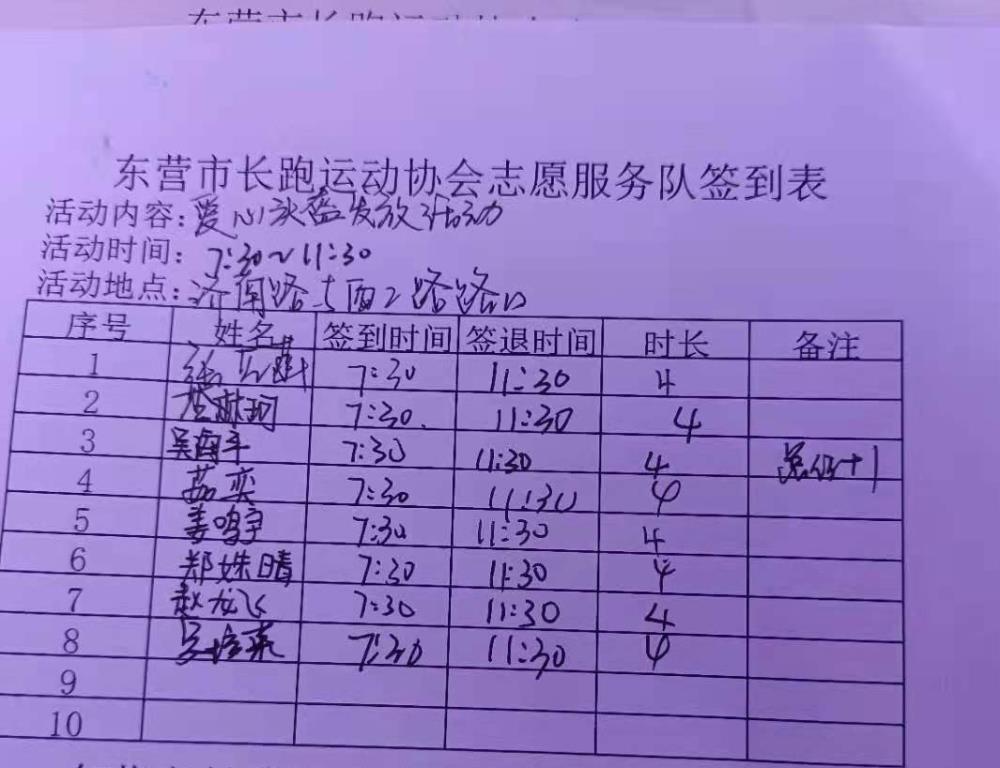 东营市长跑运动协会志愿服务队签到表
活动内容:爱心冰莲发放活动
活动时间:7:30~11:30
活动地点:济南路与西2路路口
序号 姓名 签到时间 签退时间 时长 备注
1 7:30 11:30 4
2 7:30. 11:30 4
3 吴海平 7:30 11:30 4 +1
4 7:30 11:30 4
5 姜鸣宇 7:30 11:30 4
6 郑姝晴 7:30 11:30 4
7 赵龙飞 7:30 11:30 4
8 7:30 11:30 4
9
10